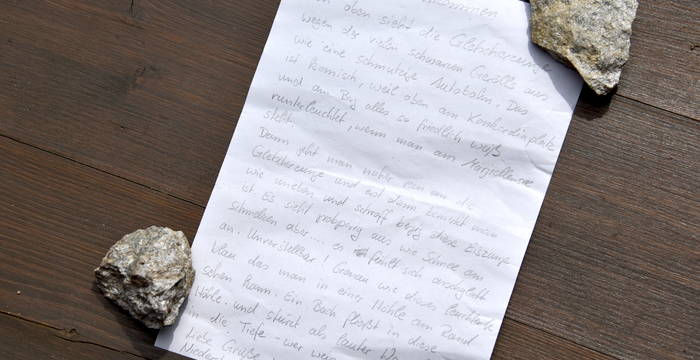 von oben sieht die Gletscherzunge
wegen des vielen schwarzen Gerölls aus
wie eine schmutzige Autobahn. Das
ist komisch, weil oben am Konkordiaplatz
und am Berg alles so friedlich weiß
runterleuchtet, wenn man am Märjelensee
steht.
Dann geht man näher ran an die
Gletscherzunge und erst dann bemerkt man
wie uneben und schroff diese Eiszunge
ist. Es sieht aus, wie Schnee am
Schmelzen aber... es fühlt sich
an. Unvorstellbar! Genau wie dieses leuchtende
blau das man in einer Höhle am Rand
sehen kann. Ein Bach fließt in diese
Höhle und stürzt als lauter
in die Tiefe - wer
Liebe Grüße